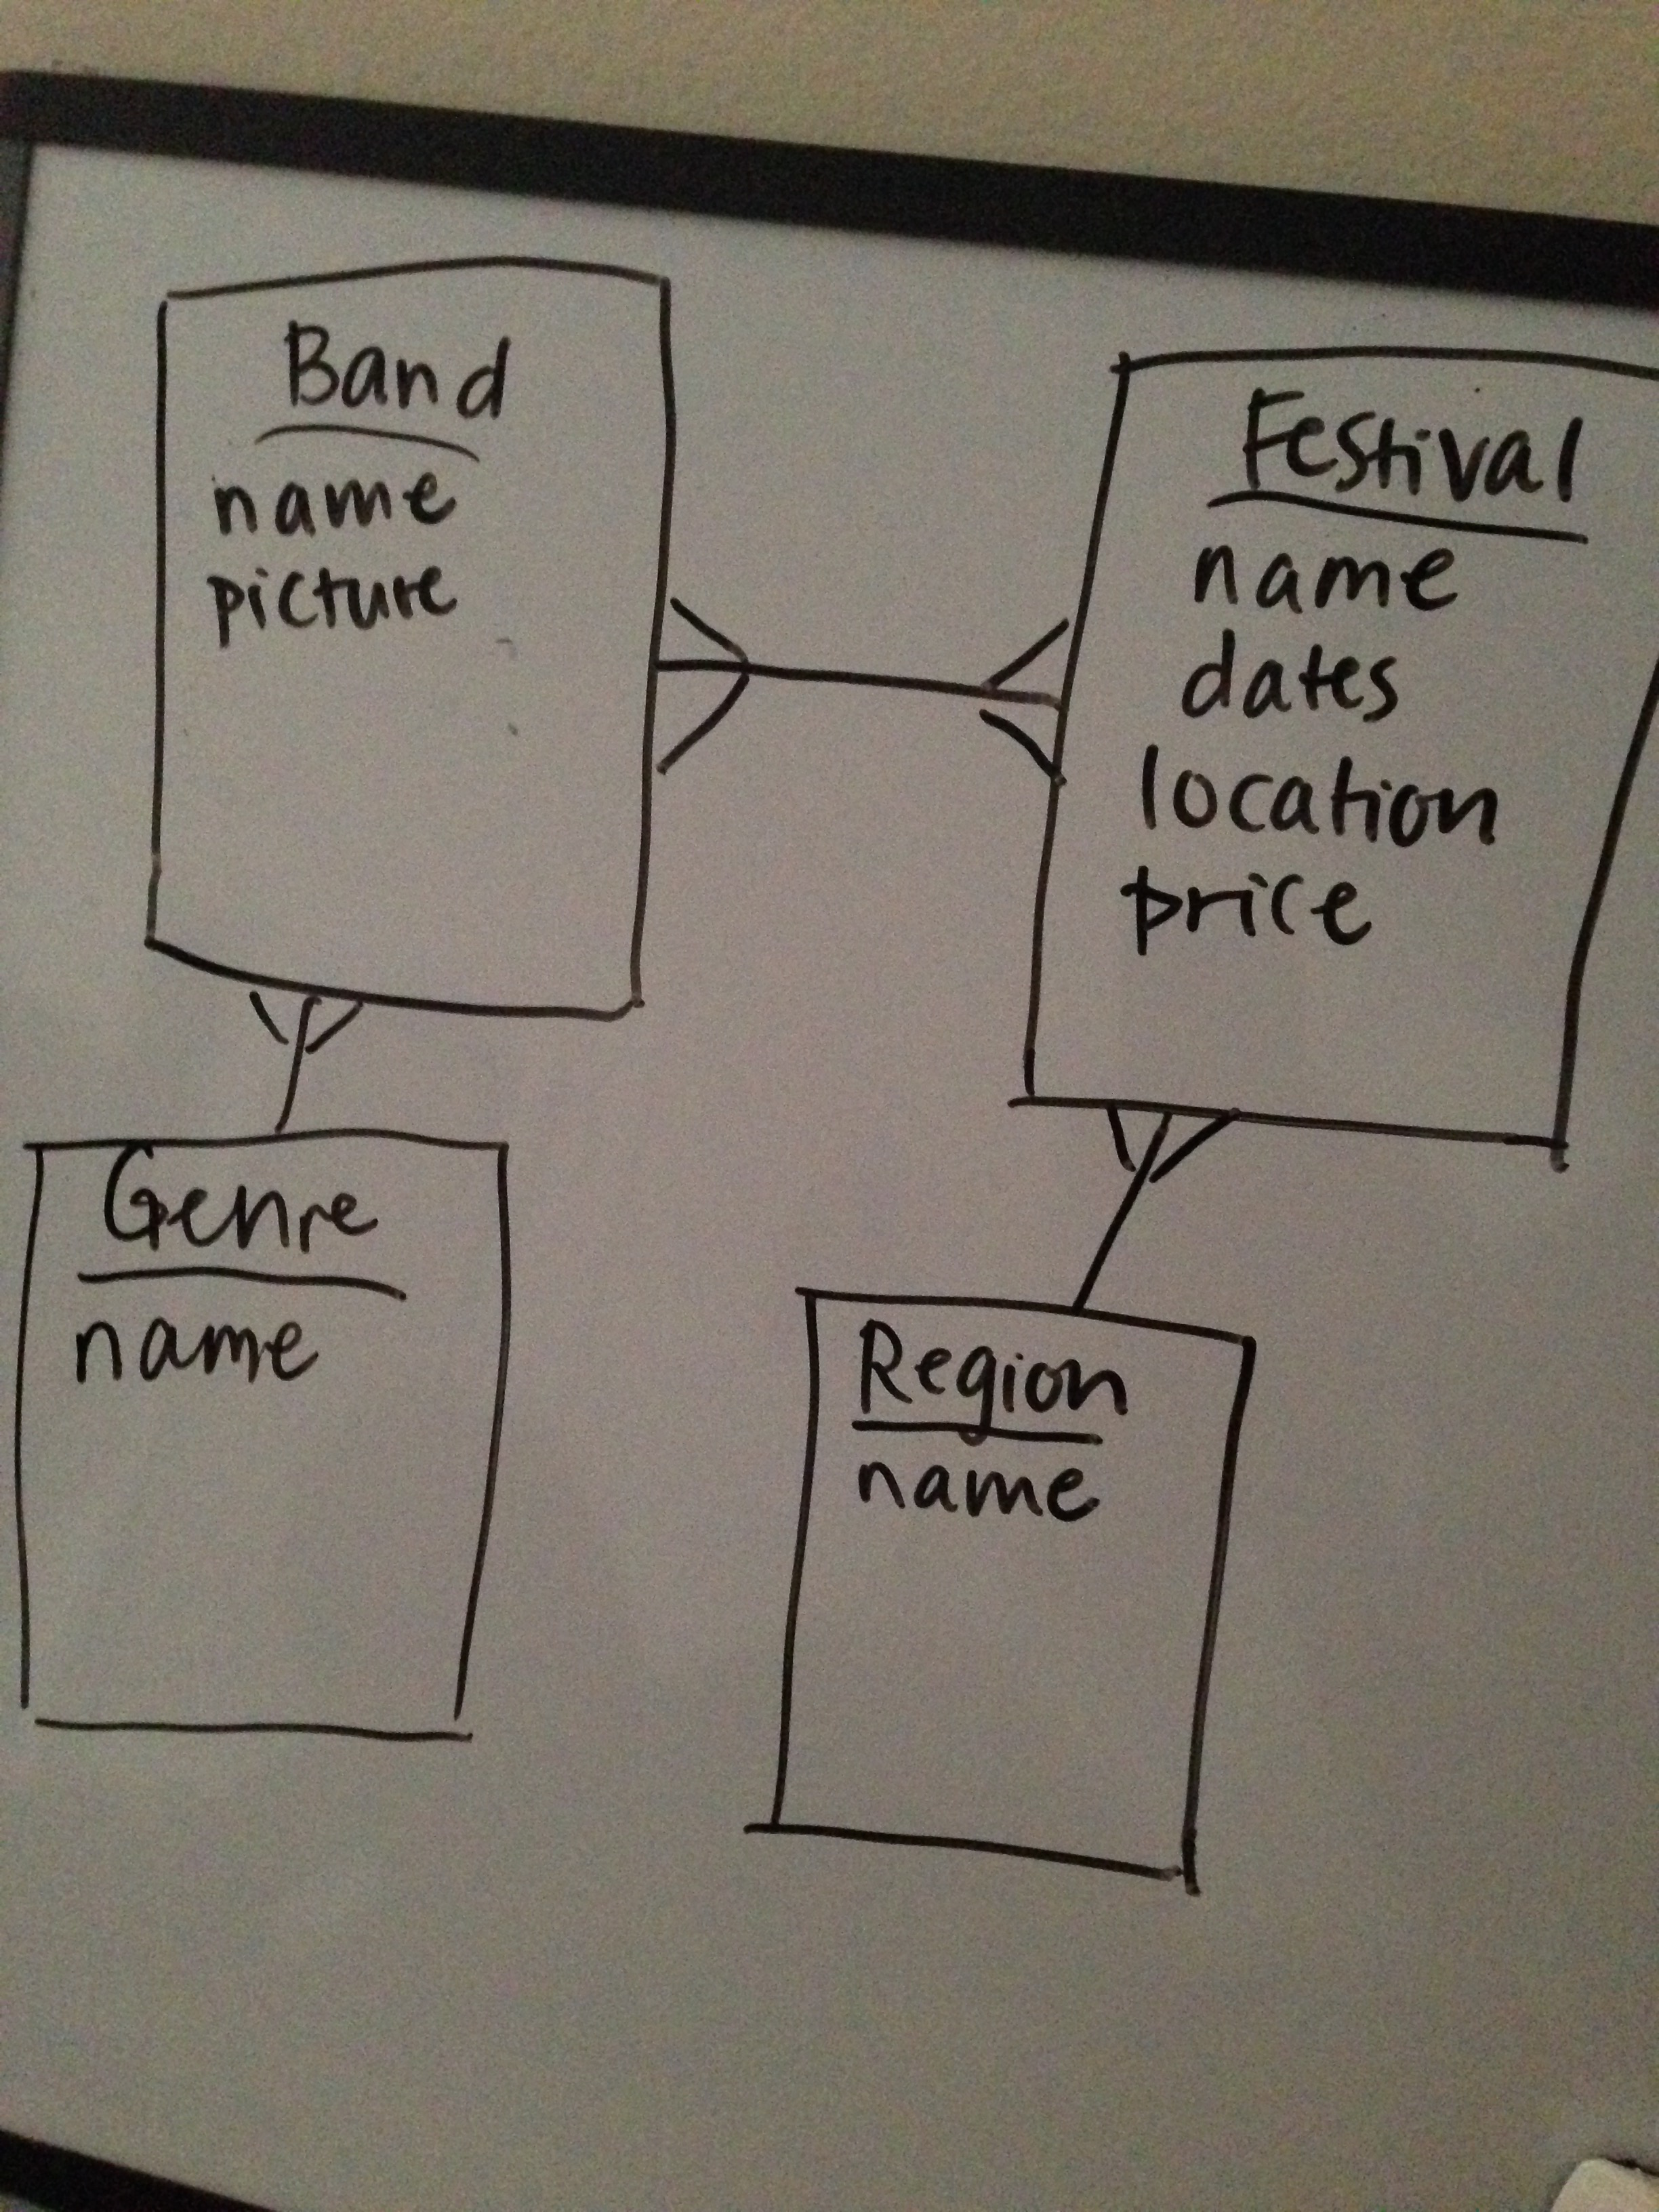 Band
name
picture
Festival
name
dates
location
price
Genre
name
Region
name